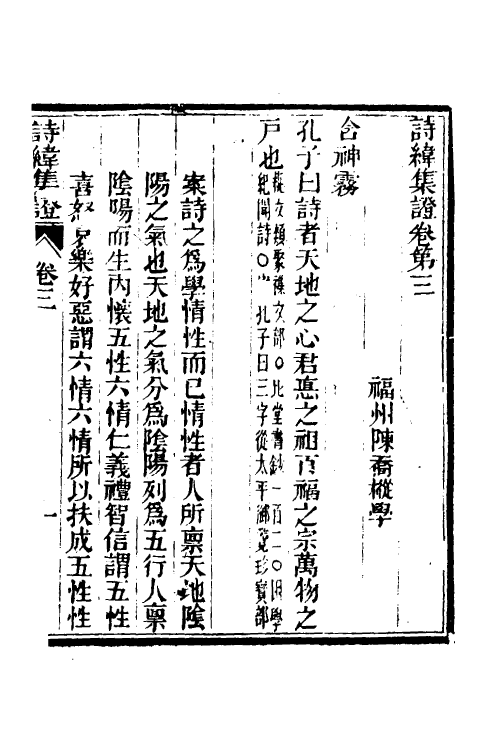 詩緯集證卷第三
福州陳喬樅學
含神霧
孔子曰詩者天地之心君悳之祖百福之宗萬物之
戶也藝文類聚襍文部○北堂書鈔一百二○初學
紀聞詩○孔子曰三字從太平御覽珍寶部
案詩之爲學情性而已情性者人所稟天地陰
陽之氣也天地之氣分爲陰陽列爲五行人稟
陰陽而生內懷五性六情仁義禮智信謂五性
喜怒哀樂好惡謂六情六情所以扶成五性性
詩緯集證
卷三
一